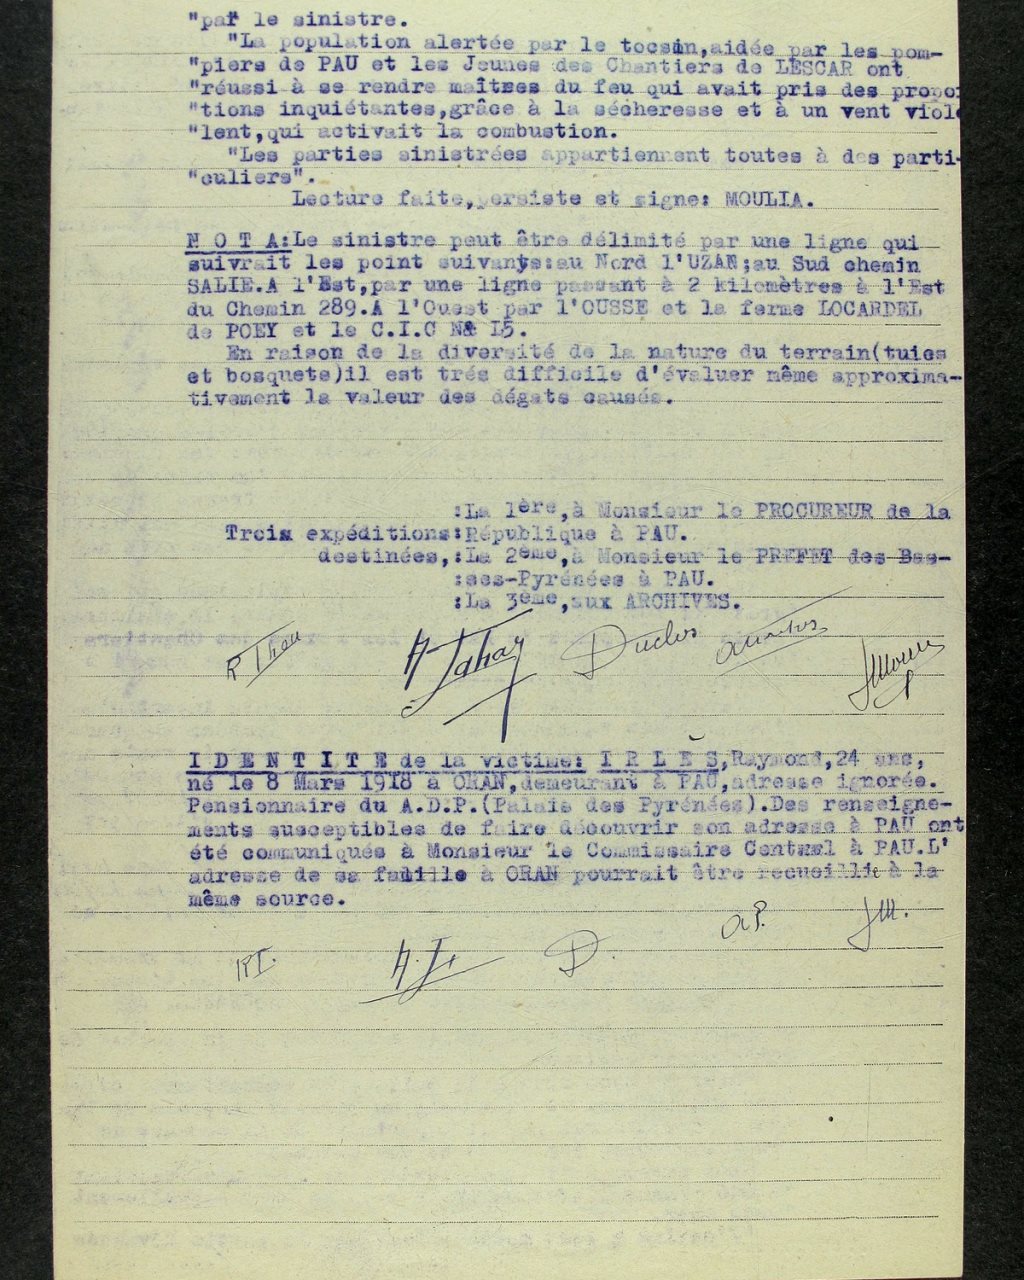 "par le sinistre.
"La population alertée par le tocsin,aidée par les pom-
"piers de PAU et les Jeunes des Chantiers de LESCAR ont
"réussi à se rendre maîtres du feu qui avait pris des propor
"tions inquiétantes,grâce à la sécheresse et à un vent viole
"lent,qui activait la combustion.
"Les parties sinistrées appartiennent toutes à des parti-
"culiers".
Lecture faite,persiste et signe: MOULIA.
N O T A:Le sinistre peut être délimité par une ligne qui
suivrait les point suivants:au Nord l'UZAN;au Sud chemin
SALIE.A l'Est,par une ligne passant à 2 kilomètres à l'Est
du Chemin 289.A l'Ouest par l'OUSSE et la ferme LOCARDEL
de POEY et le C.I.C N° I5.
En raison de la diversité de la nature du terrain(tuies
et bosquets)il est trés difficile d'évaluer même approxima-
tivement la valeur des dégats causés.
:La 1ère,à Monsieur le PROCUREUR de la
Trois expéditions:République à PAU.
destinées,:La 2ème,à Monsieur le PREFET des Bas-
:ses-Pyrénées à PAU.
:La 3ème,aux ARCHIVES.
Duclos
I D E N T I T E de la victime: I R L È S,Raymond,24 ans,
né le 8 Mars 1918 à ORAN,demeurant à PAU,adresse ignorée.
Pensionnaire du A.D.P.(Palais des Pyrénées).Des renseigne-
ments susceptibles de faire découvrir son adresse à PAU ont
été communiqués à Monsieur le Commissaire Central à PAU.L'
adresse de sa famille à ORAN pourrait être recueillie à la
même source.
a.P. J M.
R T. A. T. D.